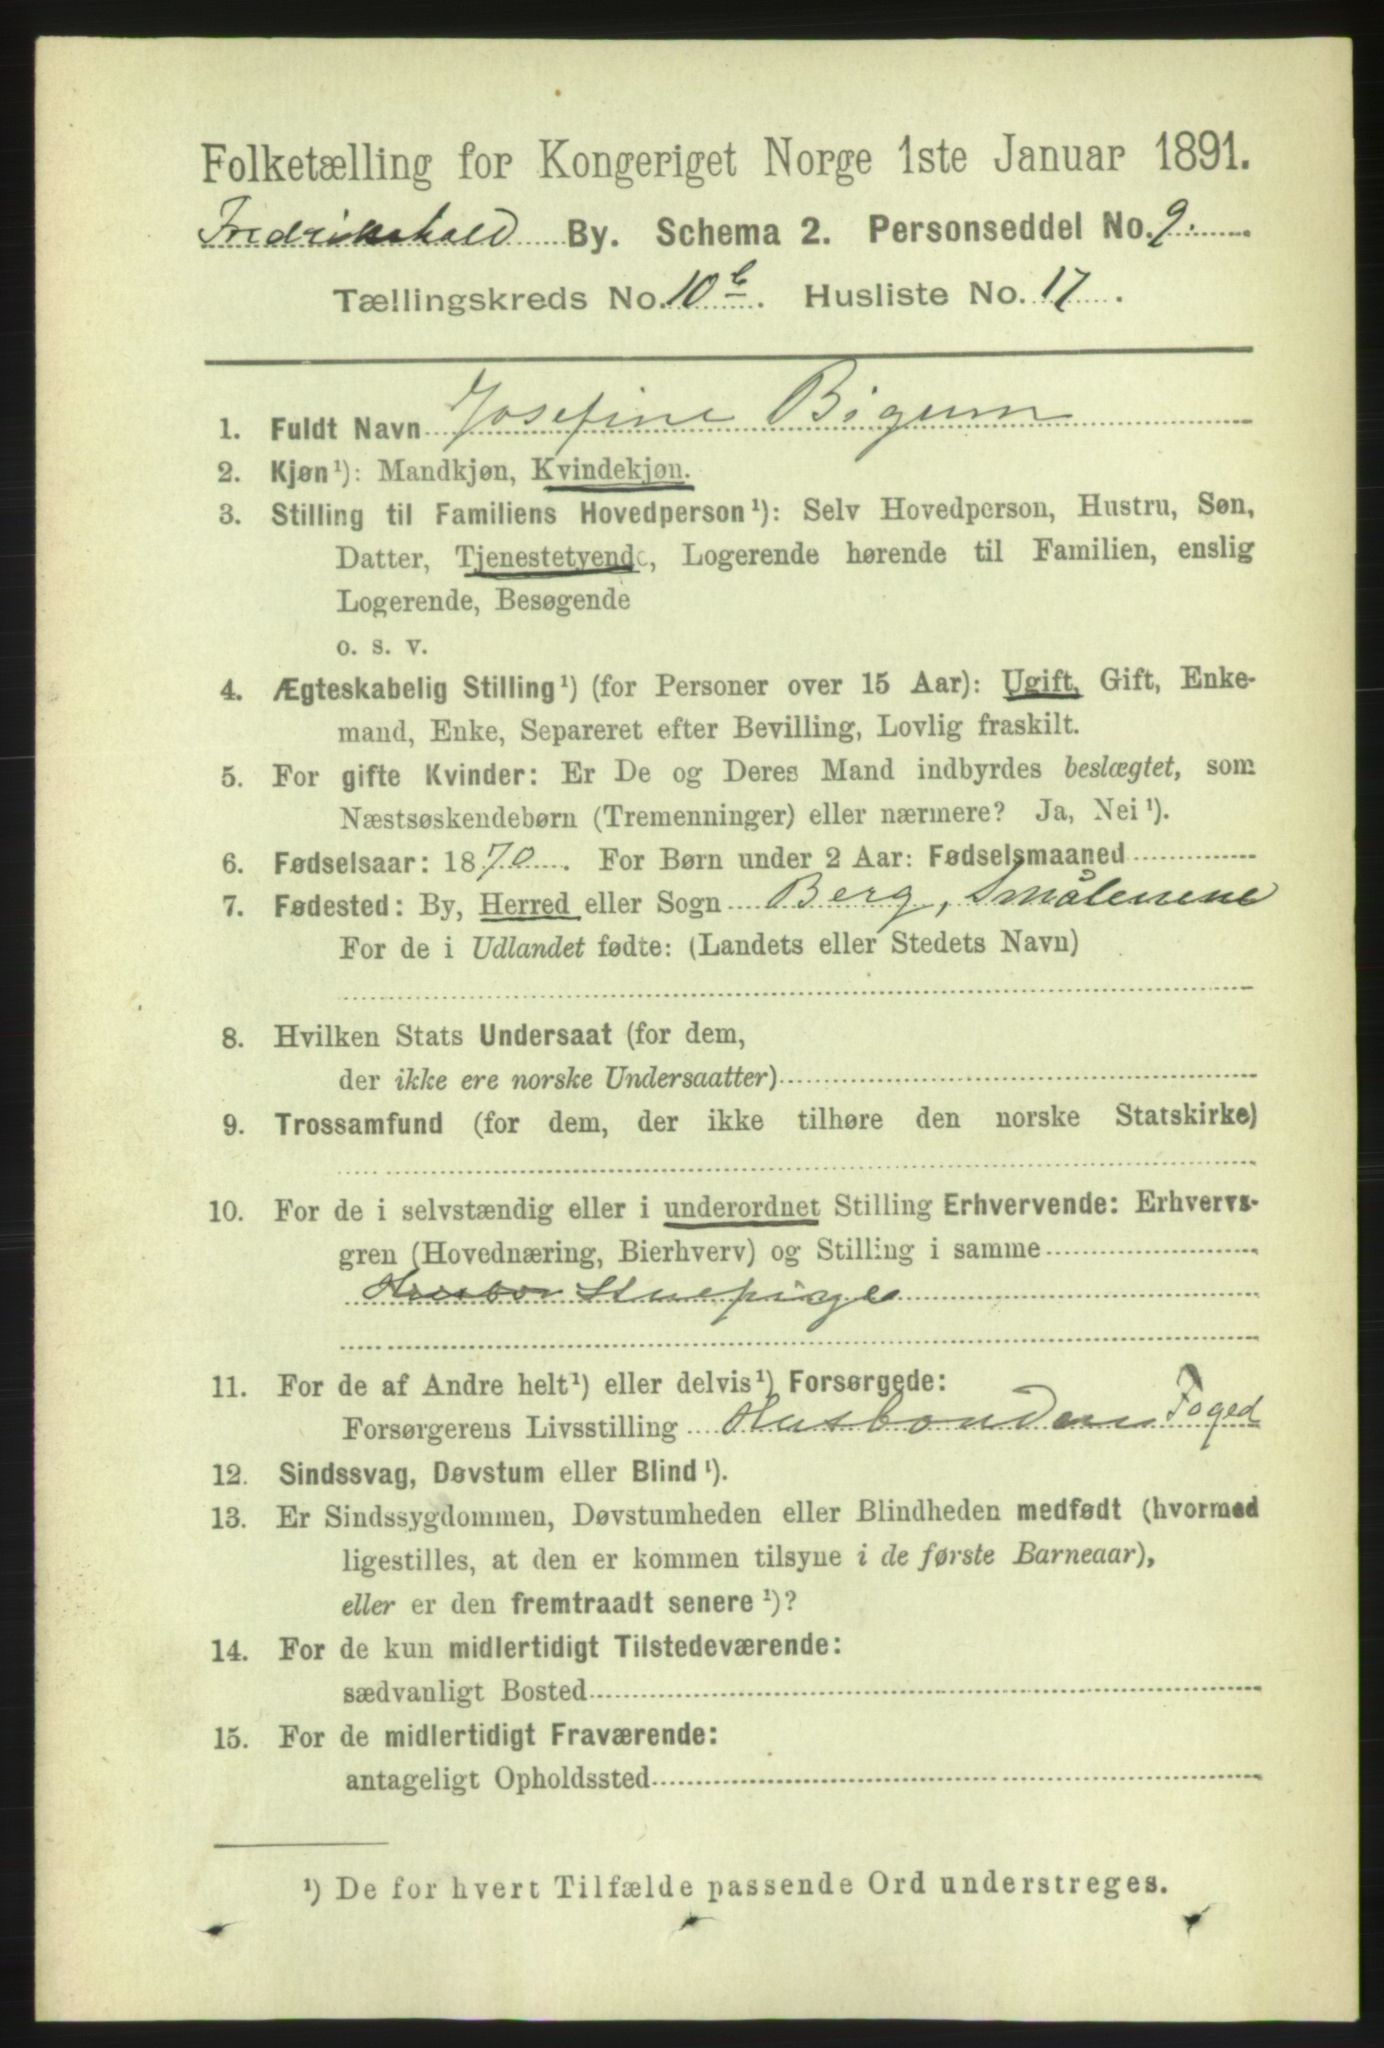 Folketælling for Kongeriget Norge 1ste Januar 1891.
Fredrikshald By. Schema 2. Personseddel No. 9.
Tællingskreds No. 10 b. Husliste No. 17.
1. Fuldt Navn Josefine Bigum
2. Kjøn¹): Mandkjøn, Kvindekjøn.
3. Stilling til Familiens Hovedperson¹): Selv Hovedperson, Hustru, Søn,
Datter, Tjenestetyende, Logerende hørende til Familien, enslig
Logerende, Besøgende
o. s. v.
4. Ægteskabelig Stilling¹) (for Personer over 15 Aar): Ugift, Gift, Enke-
mand, Enke, Separeret efter Bevilling, Lovlig fraskilt.
5. For gifte Kvinder: Er De og Deres Mand indbyrdes beslægtet, som
Næstsøskendebørn (Tremenninger) eller nærmere? Ja, Nei¹).
6. Fødselsaar: 1870. For Børn under 2 Aar: Fødselsmaaned
7. Fødested: By, Herred eller Sogn Berg, Smålenene
For de i Udlandet fødte: (Landets eller Stedets Navn)
8. Hvilken Stats Undersaat (for dem,
der ikke ere norske Undersaatter)
9. Trossamfund (for dem, der ikke tilhøre den norske Statskirke)
10. For de i selvstændig eller i underordnet Stilling Erhvervende: Erhvervs-
gren (Hovednæring, Bierhverv) og Stilling i samme
Stuepige
11. For de af Andre helt¹) eller delvis¹) Forsørgede:
Forsørgerens Livsstilling Husbonden Foged
12. Sindssvag, Døvstum eller Blind¹).
13. Er Sindssygdommen, Døvstumheden eller Blindheden medfødt (hvormed
ligestilles, at den er kommen tilsyne i de første Barneaar),
eller er den fremtraadt senere¹)?
14. For de kun midlertidigt Tilstedeværende:
sædvanligt Bosted
15. For de midlertidigt Fraværende:
antageligt Opholdssted
¹) De for hvert Tilfælde passende Ord understreges.